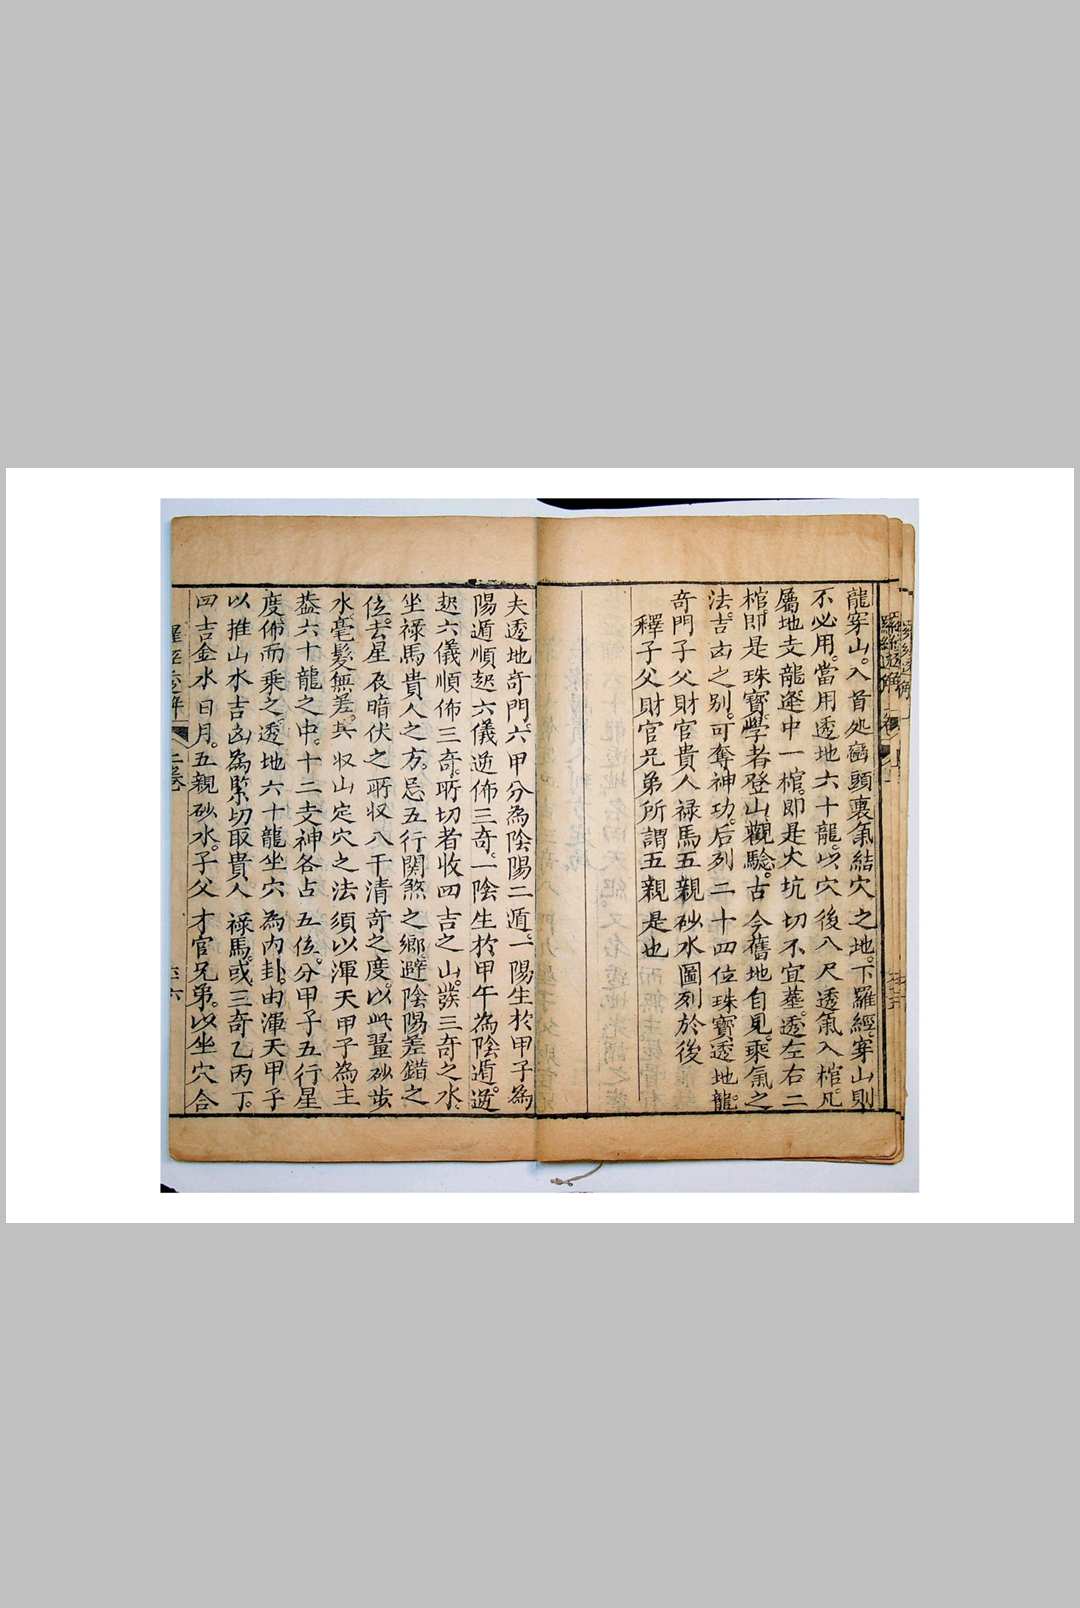 龍穿山。入首処巒頭裏氣結穴之地。下羅經。穿山則
不必用。當用透地六十龍。以穴後八尺透氣入棺。凡
屬地支龍邊中一棺。即是大坑切不宜塟。透左右二
棺。即是珠寳。學者登山觀騐。古今舊地自見。乘氣之
法。吉凶之別。可奪神功。后列二十四位珠寳透地龍。
奇門子父財官貴人禄馬五親砂水圖列於後
釋子父財官兄弟所謂五親是也
夫透地奇門。六甲分為陰陽二遁。一陽生於甲子為
陽遁順起六儀逆佈三奇。一陰生於甲午為陰遁。逆
起六儀順佈三奇。所切者收四吉之山。發三奇之水。
坐禄馬貴人之方。忌五行関煞之鄉。避陰陽差錯之
位。去星辰暗伏之所収八干清奇之度。以此量砂步
水。毫髮無差。其収山定穴之法須以渾天甲子為主
葢六十龍之中。十二支神各占五位。分甲子五行星
度佈而乘之。透地六十龍坐穴為内卦。由渾天甲子
以推山水吉凶為緊切取貴人禄馬。或三奇乙丙丁。
四吉金水日月。五親砂水。子父才官兄弟。以坐穴合
二卷